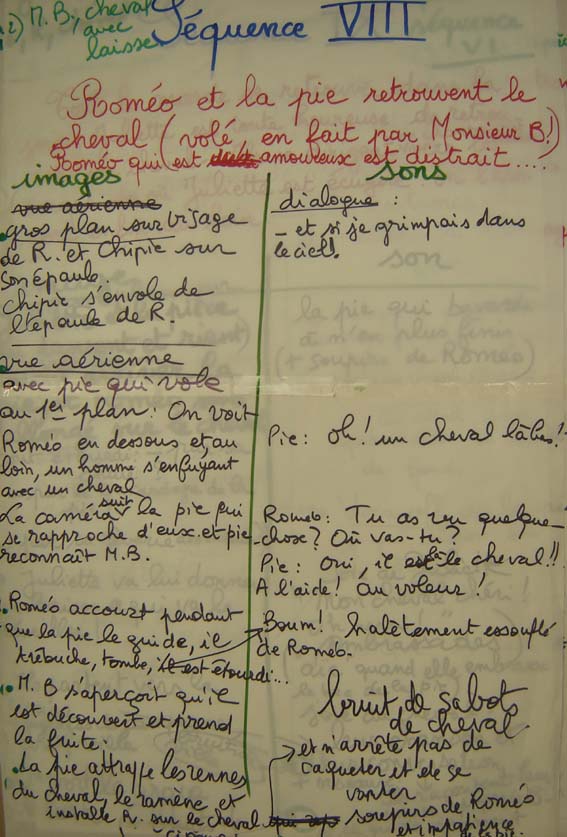 2) M.B., cheval
avec
laisse
Séquence VIII
Roméo et la pie retrouvent le
cheval (volé en fait par Monsieur B!)
Roméo qui est amoureux est distrait....
images
vue aérienne
gros plan sur visage
de R. et Chipie sur
son épaule.
chipie s'envole de
l'épaule de R.
vue aérienne
avec pie qui vole
au 1er plan: On voit
Roméo en dessous et au
loin, un homme s'enfuyant
avec un cheval
La caméra suit la pie qui
se rapproche d'eux et pie
reconnaît M.B.
Roméo accourt pendant
que la pie le guide, il
trébuche, tombe, il est étourdi...
M. B s'aperçoit qu'il
est découvert et prend
la fuite.
La pie attrappe les rennes
du cheval, le ramène et
installe R. sur le cheval
sons
dialogue :
- et si je grimpais dans
le ciel!
Pie: Oh! un cheval là bas!
Roméo: Tu as vu quelque-
chose? Où vas-tu?
Pie: Oui, il est là le cheval!!
A l'aide! Au voleur!
Boum! halètement essouflé
de Roméo.
bruit de sabots
de cheval
et n'arrête pas de
caqueter et de se
vanter
soupirs de Roméo
et impatience
son
la pie qui bavarde
à n'en plus finir
(+ soupirs de Roméo)